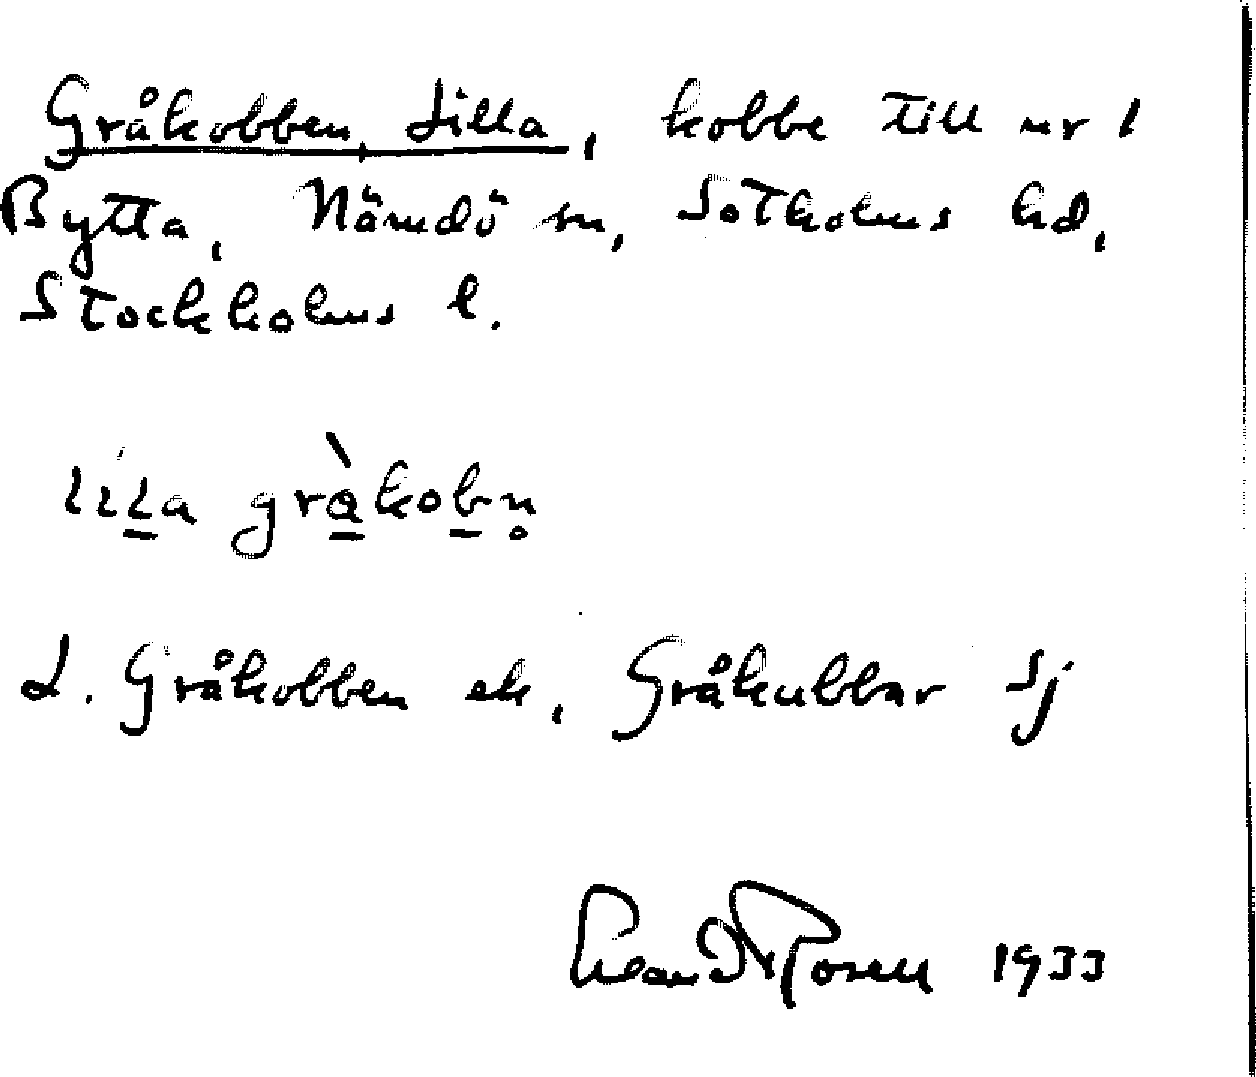 Gråkobben, Lilla, kobbe till nr 1
Bytta, Nämdö sn, Sotholms hd,
Stockholms l.
lilla gràkobn̥
L. Gråkobben ek, Gråkubbar Sj
Rosell 1933